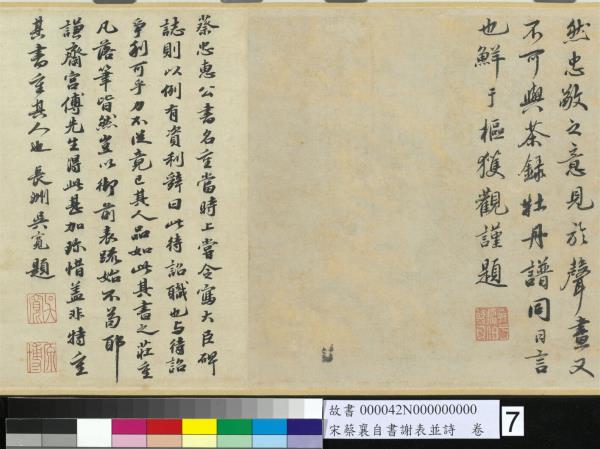 然忠敬之意見於聲畫又
不可與茶録牡丹譜同日言
也鮮于樞獲觀謹題
蔡忠惠公書名重當時上嘗令寫大臣碑
誌則以例有資利辭曰此待詔職也与待詔
爭利可乎力不從竟已其人品如此其書之莊重
凡落筆皆然豈以御前表疏始不苟耶
謙齋宮傅先生得此甚加珎惜盖非特重
其書重其人也 長洲吳寬題
吳寬
原博
故書 000042N000000000
宋蔡襄自書謝表並詩 卷
7